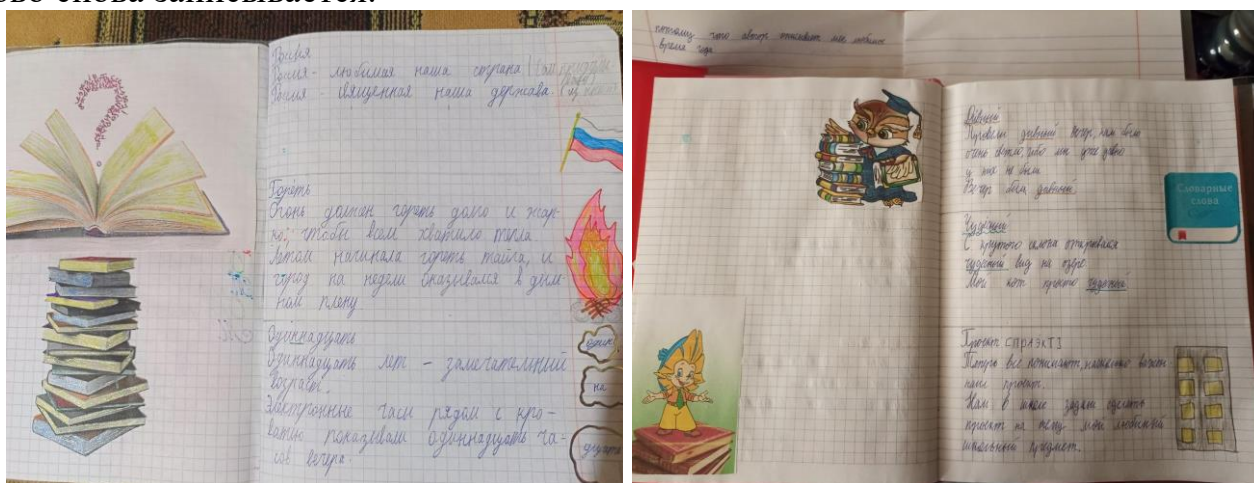 ово снова записывается.
Россия
Россия - любимая наша страна
Россия - священная наша держава.
Гореть
Огонь должен гореть долго и жар-
ко, чтобы всем хватило тепла
Летом начинала гореть тайга, и
город на недели оказывался в дым-
ном плену
Одиннадцать
Одиннадцать лет - замечательный
возраст.
Электронные часы рядом с кро-
ватью показывали одиннадцать ча-
сов вечера.
один
на
дцать
потому что автор описывает мое любимое
время года
Дивный
Провели дивный вечер, нам было
очень светло, ибо мы уже давно
у них не были
Вечер был дивный.
Чудесный
С крутого склона открывался
чудесный вид на озеро
Мой кот просто
Словарные
слова
Проект
Теперь все понимают, насколько важен
наш проект.
Нам в школе задали сделать
проект на тему мой любимый
школьный предмет.